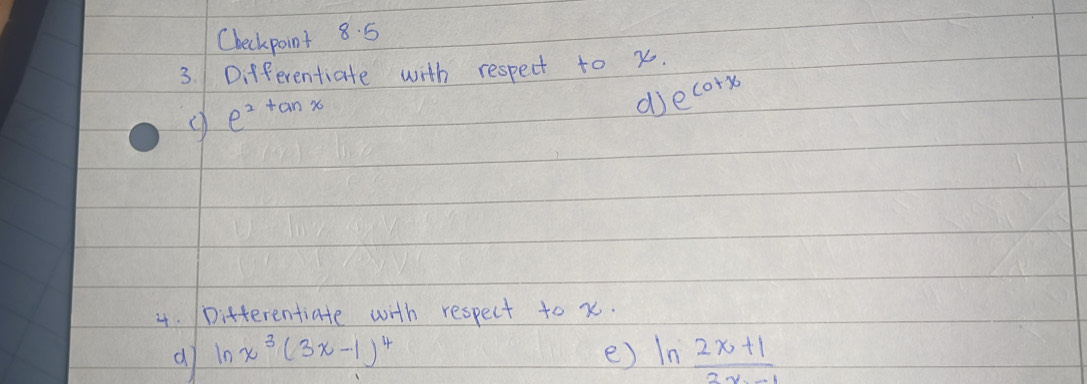 Checkpoint 8.5
3. Differentiate with respect to x.
c) e^{2 tan x} d) e^{cot x}
4. Differentiate with respect to x.
d) ln x³ (3x-1)⁴ e) ln \frac{2x+1}{3x-1}